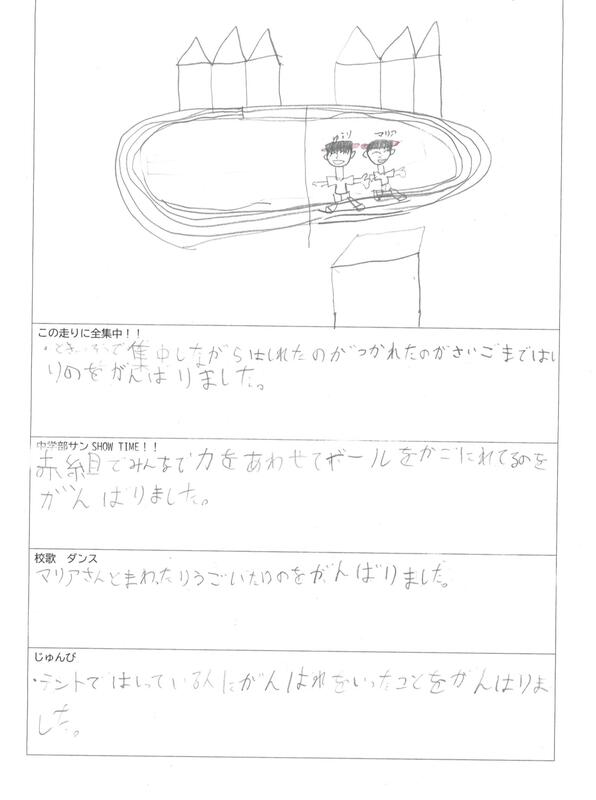 ゆうり
マリア
この走りに全集中！！
集中しながらはしれたのがつかれたのがさいごまではし
りのをがんばりました。
中学部サン SHOW TIME！！
赤組でみんなで力をあわせてボールをかごにれてるのを
がんばりました。
校歌　ダンス
マリアさんとまわったりうごいたりのをがんばりました。
じゅんび
・テントではしっている人にがんばれをいったことをがんばりま
した。